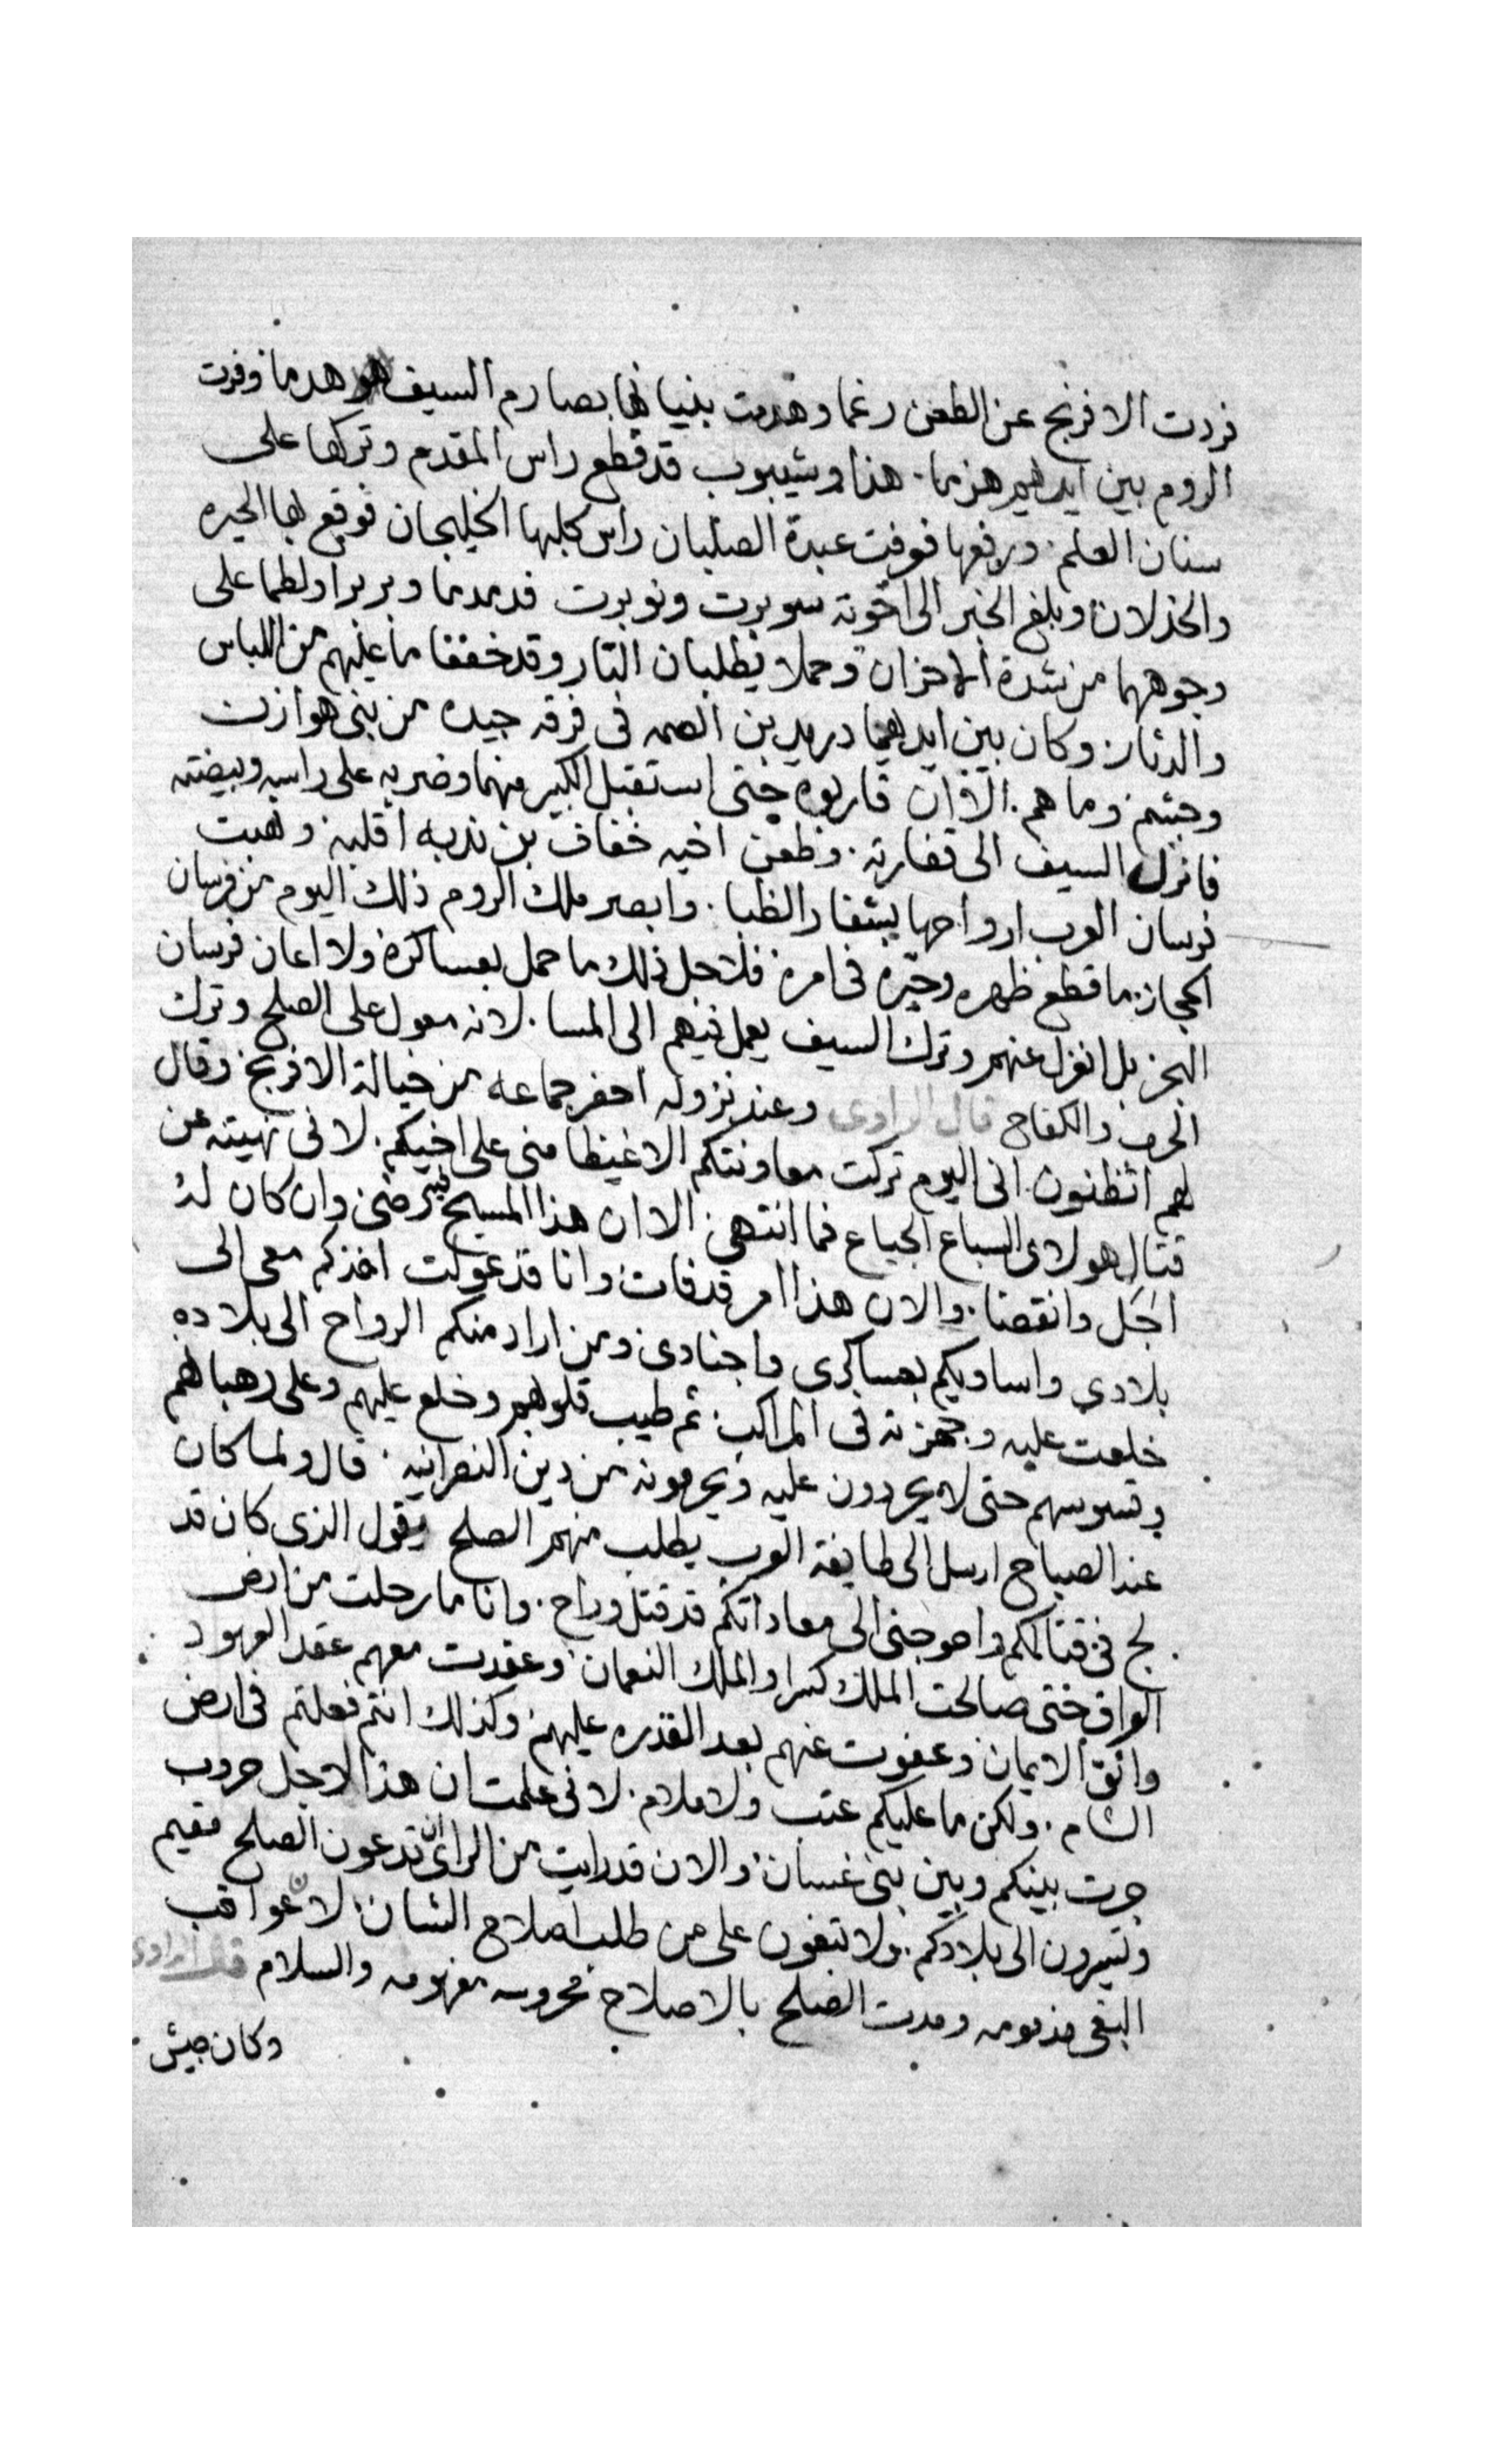 فردت الافرنج عن الطعن رغما وهدمت بنيانها بصارم السيف هدما وفرت
الروم بين ايديهم هزما. هذا وشيبوب قد قطع راس المقدم وتركها على
سنان العلم. ورفعها فوفت عبدة الصلبان راس كلبها الخليجان فوقع لها الحيره
والخذلان وبلغ الخبر الى اخوته سوبرت ونوبرت فدمدما وبربرا ولطما على
وجوههما من شدة الاحزان وحملا يطلبان التار وقد خففا ما عليهم من اللباس
والدثار وكان بين ايديهما دريد بن الصمه فى فرقه جيده من بنى هوازن
وجشم وما هم. الا ان قاربوه حتى استقبل الكبير منهما وضربه على راسه وبيضته
فانزل السيف الى قفارته. وطعن اخيه خفاف بن ندبه اقلبه ونهبت
فرسان العرب ارواحها بشفار الظبا. وابصر ملك الروم ذلك اليوم من فرسان
الحجاز. ما قطع ظهره وحيره فى امره فلاجل ذلك ما حمل بعساكره ولا اعان فرسان
البحر بل انعزل عنهم وترك السيف يعمل فيهم الى المسا. لانه معول على الصلح وترك
الحرب والكفاح قال الراوى وعند نزوله احضر جماعه من خيالة الافرنج وقال
لهم اتظنون انى اليوم تركت معاونتكم الا غيظا منى على اخيكم. لانى نهيته عن
قتال هولاى السباع الجياع فما انتهى. الا ان هذا المسيح بيرضى وان كان له
اجل وانقضا. والان هذا امر قد فات وانا قد عولت اخذكم معى الى
بلادى واساويكم بعساكرى واجنادى ومن اراد منكم الرواح الى بلاده
خلعت عليه وجهزته فى المراكب. ثم طيب قلوبهم وخلع عليهم وعلى رهبانهم
وقسوسهم حتى لا يحردون عليه ويحرمونه من دين النصرانيه. قال ولما كان
عند الصباح ارسل الى طايفة العرب يطلب منهم الصلح يقول الذى كان قد
لج فى قتالكم واحوجنى الى معاداتكم قد قتل وراح. وانا ما رحلت من ارض
العراق حتى صالحت الملك كسرا والملك النعمان وعقدت معهم عقد العهود
واثق الايمان وعفوت عنهم بعد القدره عليهم وكذلك انتم فعلتم فى ارض
الشام. ولكن ما عليكم عتب ولا ملام. لانى علمت ان هذا لاجل حروب
جرت بينكم وبين بنى غسان والان قد رايت من الراى ان تدعون الصلح مقيم
وتسيرون الى بلادكم. ولا تبغون على من طلب اصلاح الشان لان عواقب
البغى مذمومه ومدت الصلح بالاصلاح محروسه مفهومه والسلام قال الراوى
وكان جيش